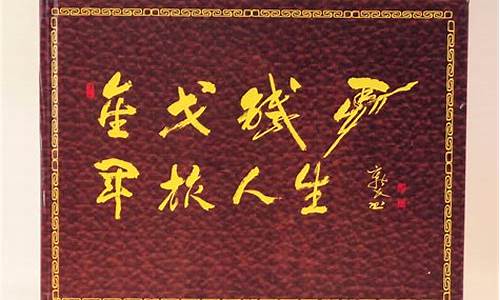 金戈铁马
军旅人生